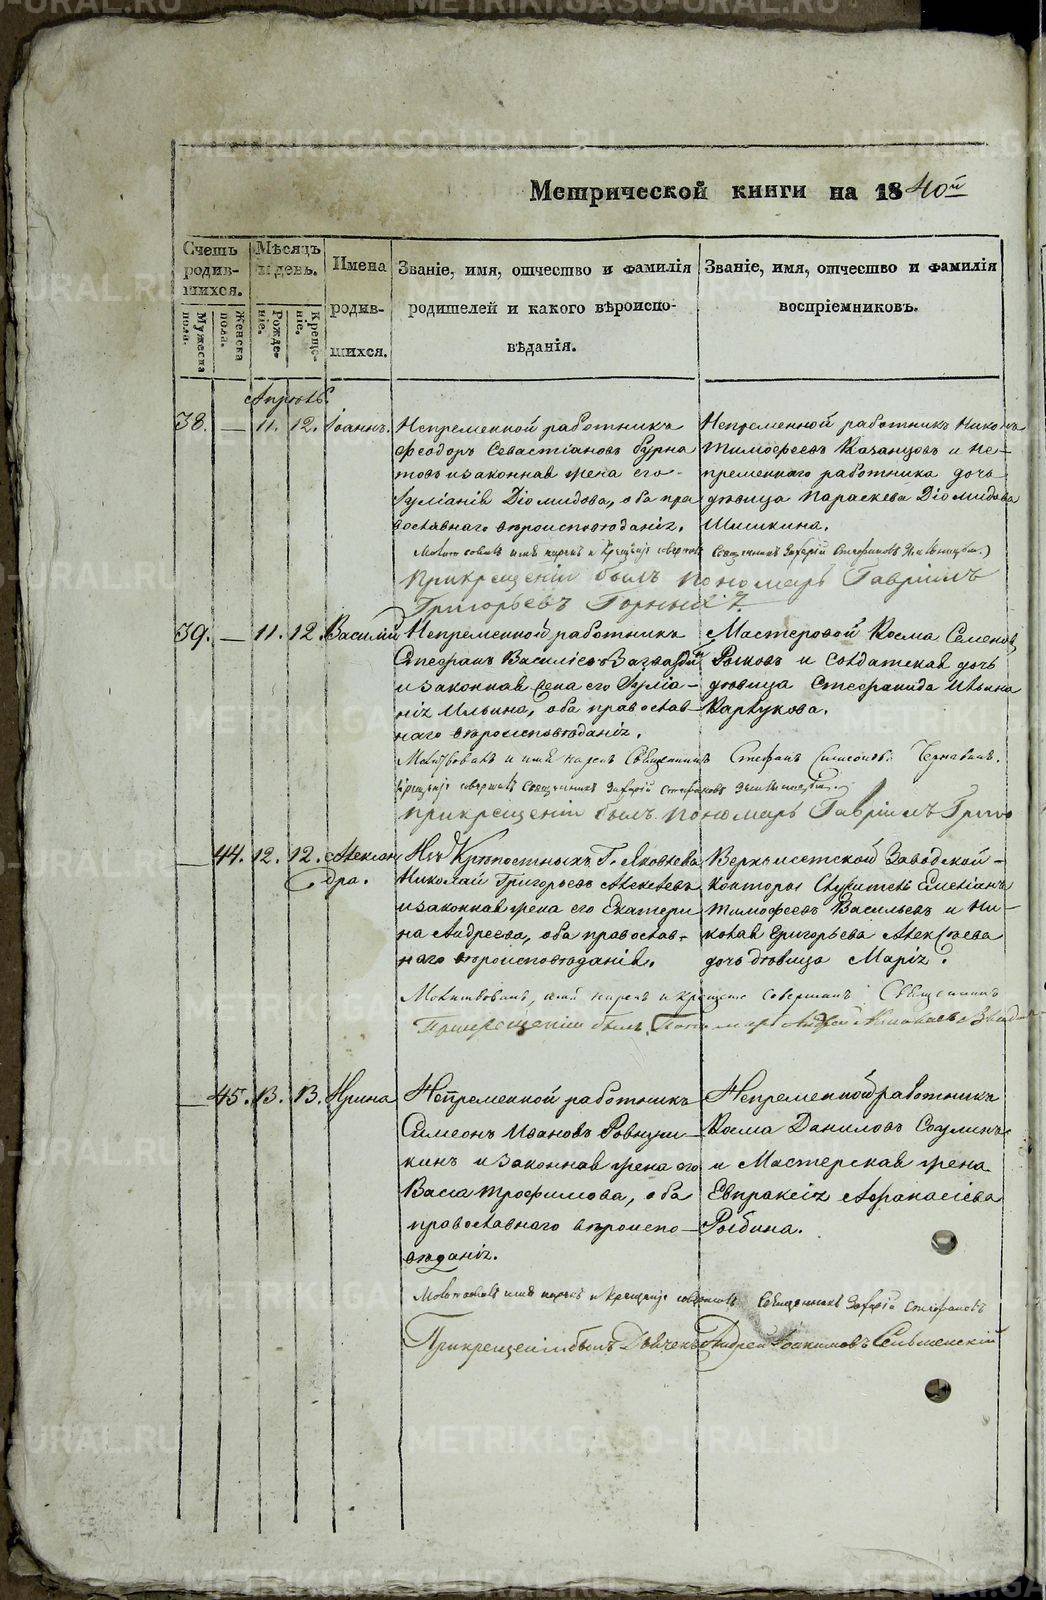 Метрической книги на 1840й
Счетъ родив-шихся.
Мужеска пола.
Женска пола.
Мѣсяцъ и день.
Рожде-ніе.
Креще-ніе.
Имена родив-шихся.
Званіе, имя, отчество и фамилія родителей и какого вѣроиспо-вѣданія.
Званіе, имя, отчество и фамилія воспріемниковъ.
Апрѣль.
38. — 11. 12. Іоаннъ.
Непременной работникъ
Феодоръ Севастіановъ Бурна
товъ и законная жена его
Іуліанія Діомидова, оба пра
вославнаго вѣроисповѣданія.
Непременной работникъ
Тимофеевъ Казанцовъ и не-
пременнаго работника дочь
дѣвица Параскева Діомидова
Шишкина.
имя нарекъ и крещеніе совершилъ Священникъ Захарій Стефановъ
При крещеніи былъ пономарь Гавріилъ
Григорьевъ Горныхъ
39. — 11. 12. Василій
Непременной работникъ
Стефанъ Василіевъ
и законная жена его Іуліа-
нія Ильина, оба православ-
наго вѣроисповѣданія.
Мастеровой Косма Семеновъ
и солдатская дочь
дѣвица Стефанида Ильина
Молитвовалъ и имя нарекъ Священникъ Стефанъ
крещеніе совершилъ Священникъ Захарій Стефановъ
При крещеніи былъ пономарь Гавріилъ
— 44. 12. 12. Алексан
дра.
Крѣпостныхъ Г. Яковлева
Николай Григорьевъ Алексѣевъ
и законная жена его Екатери
на Андреева, оба православ-
наго вѣроисповѣданія.
Верхъисетской Заводской
Конторы Служитель Емеліанъ
Тимофеевъ Васильевъ и Ни-
колая Григорьева Алексѣева
дочь дѣвица Марія.
Молитвовалъ, имя нарекъ и крещеніе совершилъ Священникъ
При крещеніи былъ Андрей
— 45. 13. 13. Ирина
Непременной работникъ
Симеонъ Ивановъ
кинъ и законная жена его
Васса Трофимова, оба
православнаго вѣроиспо-
вѣданія.
Непременной работникъ
Косма Даниловъ
и Мастерская жена
Евпраксія Афанасіева
Рыбина.
имя нарекъ и крещеніе совершилъ Священникъ Захарій Стефановъ
При крещеніи былъ Дьячекъ Андрей Іоакимовъ Сельменскій
METRIKI.GASO-URAL.RU